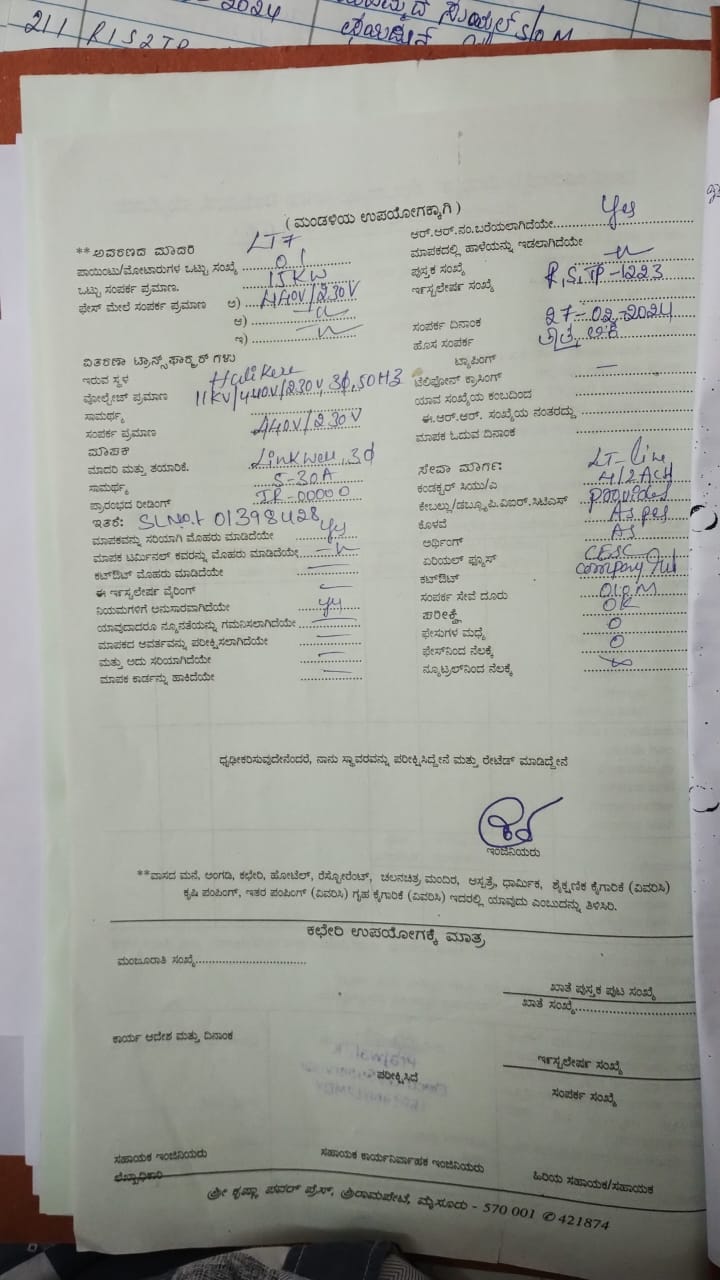 2024
211 R1S2TP
( ಮಂಡಳಿಯ ಉಪಯೋಗಕ್ಕಾಗಿ )
**ಅವರಣದ ಮಾದರಿ LT7
ಪಾಯಿಂಟು/ಮೋಟಾರುಗಳ ಒಟ್ಟು ಸಂಖ್ಯೆ 01
ಒಟ್ಟು ಸಂಪರ್ಕ ಪ್ರಮಾಣ. 15KW
ಫೇಸ್ ಮೇಲೆ ಸಂಪರ್ಕ ಪ್ರಮಾಣ ಅ) 440V/230V
ಆ)
ಇ)
ವಿತರಣಾ ಟ್ರಾನ್ಸ್‌ಫಾರ್‍ಮರ್ ಗಳು
ಇರುವ ಸ್ಥಳ Halikere
ವೋಲ್ಟೇಜ್ ಪ್ರಮಾಣ 11KV/440V/230V, 3ϕ, 50HZ
ಸಾಮರ್ಥ್ಯ
ಸಂಪರ್ಕ ಪ್ರಮಾಣ 440V/230V
ಮಾಪಕ
ಮಾದರಿ ಮತ್ತು ತಯಾರಿಕೆ. Linkwell, 3ϕ
ಸಾಮರ್ಥ್ಯ 5-30A
ಪ್ರಾರಂಭದ ರೀಡಿಂಗ್ IR-00000
ಇತರೆ: SLNO.+ 01398428
ಮಾಪಕವನ್ನು ಸರಿಯಾಗಿ ಮೊಹರು ಮಾಡಿದೆಯೇ
ಮಾಪಕ ಟರ್ಮಿನಲ್ ಕವರನ್ನು ಮೊಹರು ಮಾಡಿದೆಯೇ
ಕಟ್‌ಔಟ್ ಮೊಹರು ಮಾಡಿದೆಯೇ
ಈ ಇನ್‌ಸ್ಟಲೇಷನ್ ವೈರಿಂಗ್
ನಿಯಮಗಳಿಗೆ ಅನುಸಾರವಾಗಿದೆಯೇ
ಯಾವುದಾದರೂ ನ್ಯೂನತೆಯನ್ನು ಗಮನಿಸಲಾಗಿದೆಯೇ
ಮಾಪಕದ ಆವರ್ತವನ್ನು ಪರೀಕ್ಷಿಸಲಾಗಿದೆಯೇ
ಮತ್ತು ಅದು ಸರಿಯಾಗಿದೆಯೇ
ಮಾಪಕ ಕಾರ್ಡನ್ನು ಹಾಕಿದೆಯೇ
ಆರ್.ಆರ್.ನಂ.ಬರೆಯಲಾಗಿದೆಯೇ Yes
ಮಾಪಕದಲ್ಲಿ ಹಾಳೆಯನ್ನು ಇಡಲಾಗಿದೆಯೇ
ಪುಸ್ತಕ ಸಂಖ್ಯೆ
ಇನ್‌ಸ್ಟಲೇಷನ್ ಸಂಖ್ಯೆ R,S,TP-1223
ಸಂಪರ್ಕ ದಿನಾಂಕ 27-02-2024
ಹೊಸ ಸಂಪರ್ಕ
ಟ್ಯಾಪಿಂಗ್
ಟೆಲಿಫೋನ್ ಕ್ರಾಸಿಂಗ್ —
ಯಾವ ಸಂಖ್ಯೆಯ ಕಂಬದಿಂದ
ಈ.ಆರ್.ಆರ್. ಸಂಖ್ಯೆಯ ನಂತರದ್ದು
ಮಾಪಕ ಓದುವ ದಿನಾಂಕ
ಸೇವಾ ಮಾರ್ಗ: LT-line
ಕಂಡಕ್ಟರ್ ಸಿಯು/ಎ
ಕೇಬಲ್ಲು/ಡಬ್ಲ್ಯೂ.ಪಿ.ಐಆರ್.ಸಿಟಿಎಸ್ provided
ಕೊಳವೆ As per
ಅರ್ಥಿಂಗ್ AS
ಏರಿಯಲ್ ಫ್ಯೂಸ್ CESC
ಕಟ್‌ಔಟ್ company
ಸಂಪರ್ಕ ಸೇವೆ ದೂರು
ಪರೀಕ್ಷೆ OK
ಫೇಸುಗಳ ಮಧ್ಯೆ 0
ಫೇಸ್‌ನಿಂದ ನೆಲಕ್ಕೆ 0
ನ್ಯೂಟ್ರಲ್‌ನಿಂದ ನೆಲಕ್ಕೆ
ಧೃಢೀಕರಿಸುವುದೇನೆಂದರೆ, ನಾನು ಸ್ಥಾವರವನ್ನು ಪರೀಕ್ಷಿಸಿದ್ದೇನೆ ಮತ್ತು ರೇಟೆಡ್ ಮಾಡಿದ್ದೇನೆ
ಇಂಜಿನಿಯರು
**ವಾಸದ ಮನೆ, ಅಂಗಡಿ, ಕಛೇರಿ, ಹೋಟೆಲ್, ರೆಸ್ಟೋರೆಂಟ್, ಚಲನಚಿತ್ರ ಮಂದಿರ, ಆಸ್ಪತ್ರೆ, ಧಾರ್ಮಿಕ, ಶೈಕ್ಷಣಿಕ ಕೈಗಾರಿಕೆ (ವಿವರಿಸಿ)
ಕೃಷಿ ಪಂಪಿಂಗ್, ಇತರ ಪಂಪಿಂಗ್ (ವಿವರಿಸಿ) ಗೃಹ ಕೈಗಾರಿಕೆ (ವಿವರಿಸಿ) ಇದರಲ್ಲಿ ಯಾವುದು ಎಂಬುದನ್ನು ತಿಳಿಸಿರಿ.
ಕಛೇರಿ ಉಪಯೋಗಕ್ಕೆ ಮಾತ್ರ
ಮಂಜೂರಾತಿ ಸಂಖ್ಯೆ
ಖಾತೆ ಪುಸ್ತಕ ಪುಟ ಸಂಖ್ಯೆ
ಖಾತೆ ಸಂಖ್ಯೆ
ಕಾರ್ಯ ಆದೇಶ ಮತ್ತು ದಿನಾಂಕ
ಇನ್‌ಸ್ಟಲೇಷನ್ ಸಂಖ್ಯೆ
ಪರೀಕ್ಷಿಸಿದೆ
ಸಂಪರ್ಕ ಸಂಖ್ಯೆ
ಸಹಾಯಕ ಇಂಜಿನಿಯರು
ಸಹಾಯಕ ಕಾರ್ಯನಿರ್ವಾಹಕ ಇಂಜಿನಿಯರು
ಹಿರಿಯ ಸಹಾಯಕ/ಸಹಾಯಕ
ಲೆಖ್ಖಾಧಿಕಾರಿ
ಶ್ರೀ ಕೃಷ್ಣಾ ಪವರ್ ಪ್ರೆಸ್, ಶ್ರೀರಾಮಪೇಟೆ, ಮೈಸೂರು - 570 001 ✆ 421874